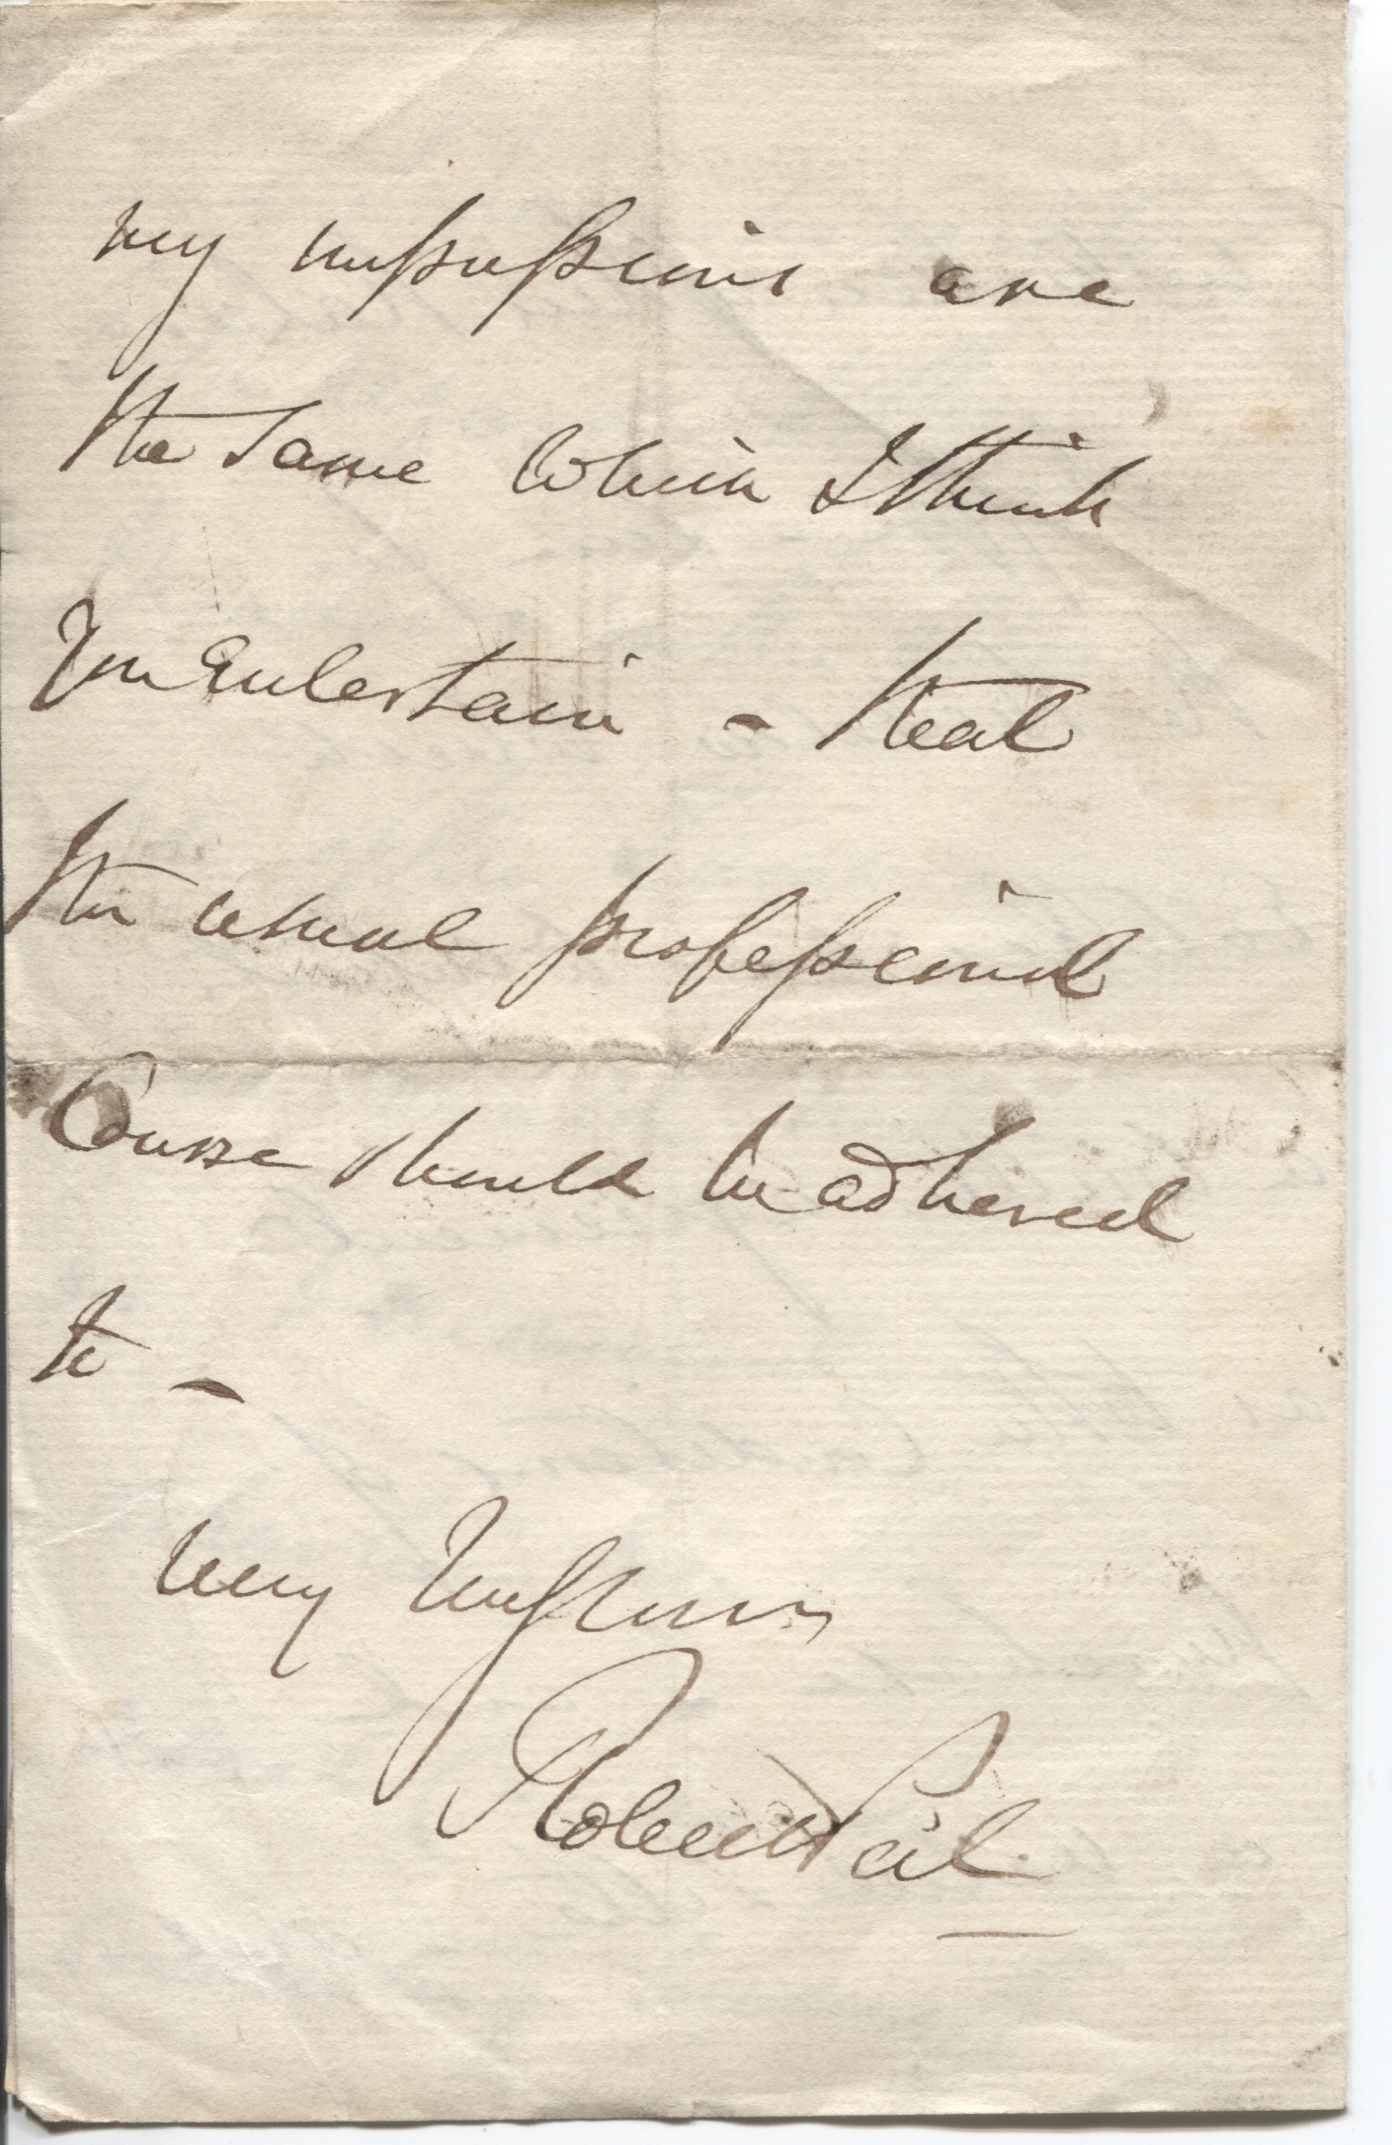 my impressions are
the same which I think
you Entertain - that
the usual professional
Course should be adhered
to -
very truly yours
Robert Peel